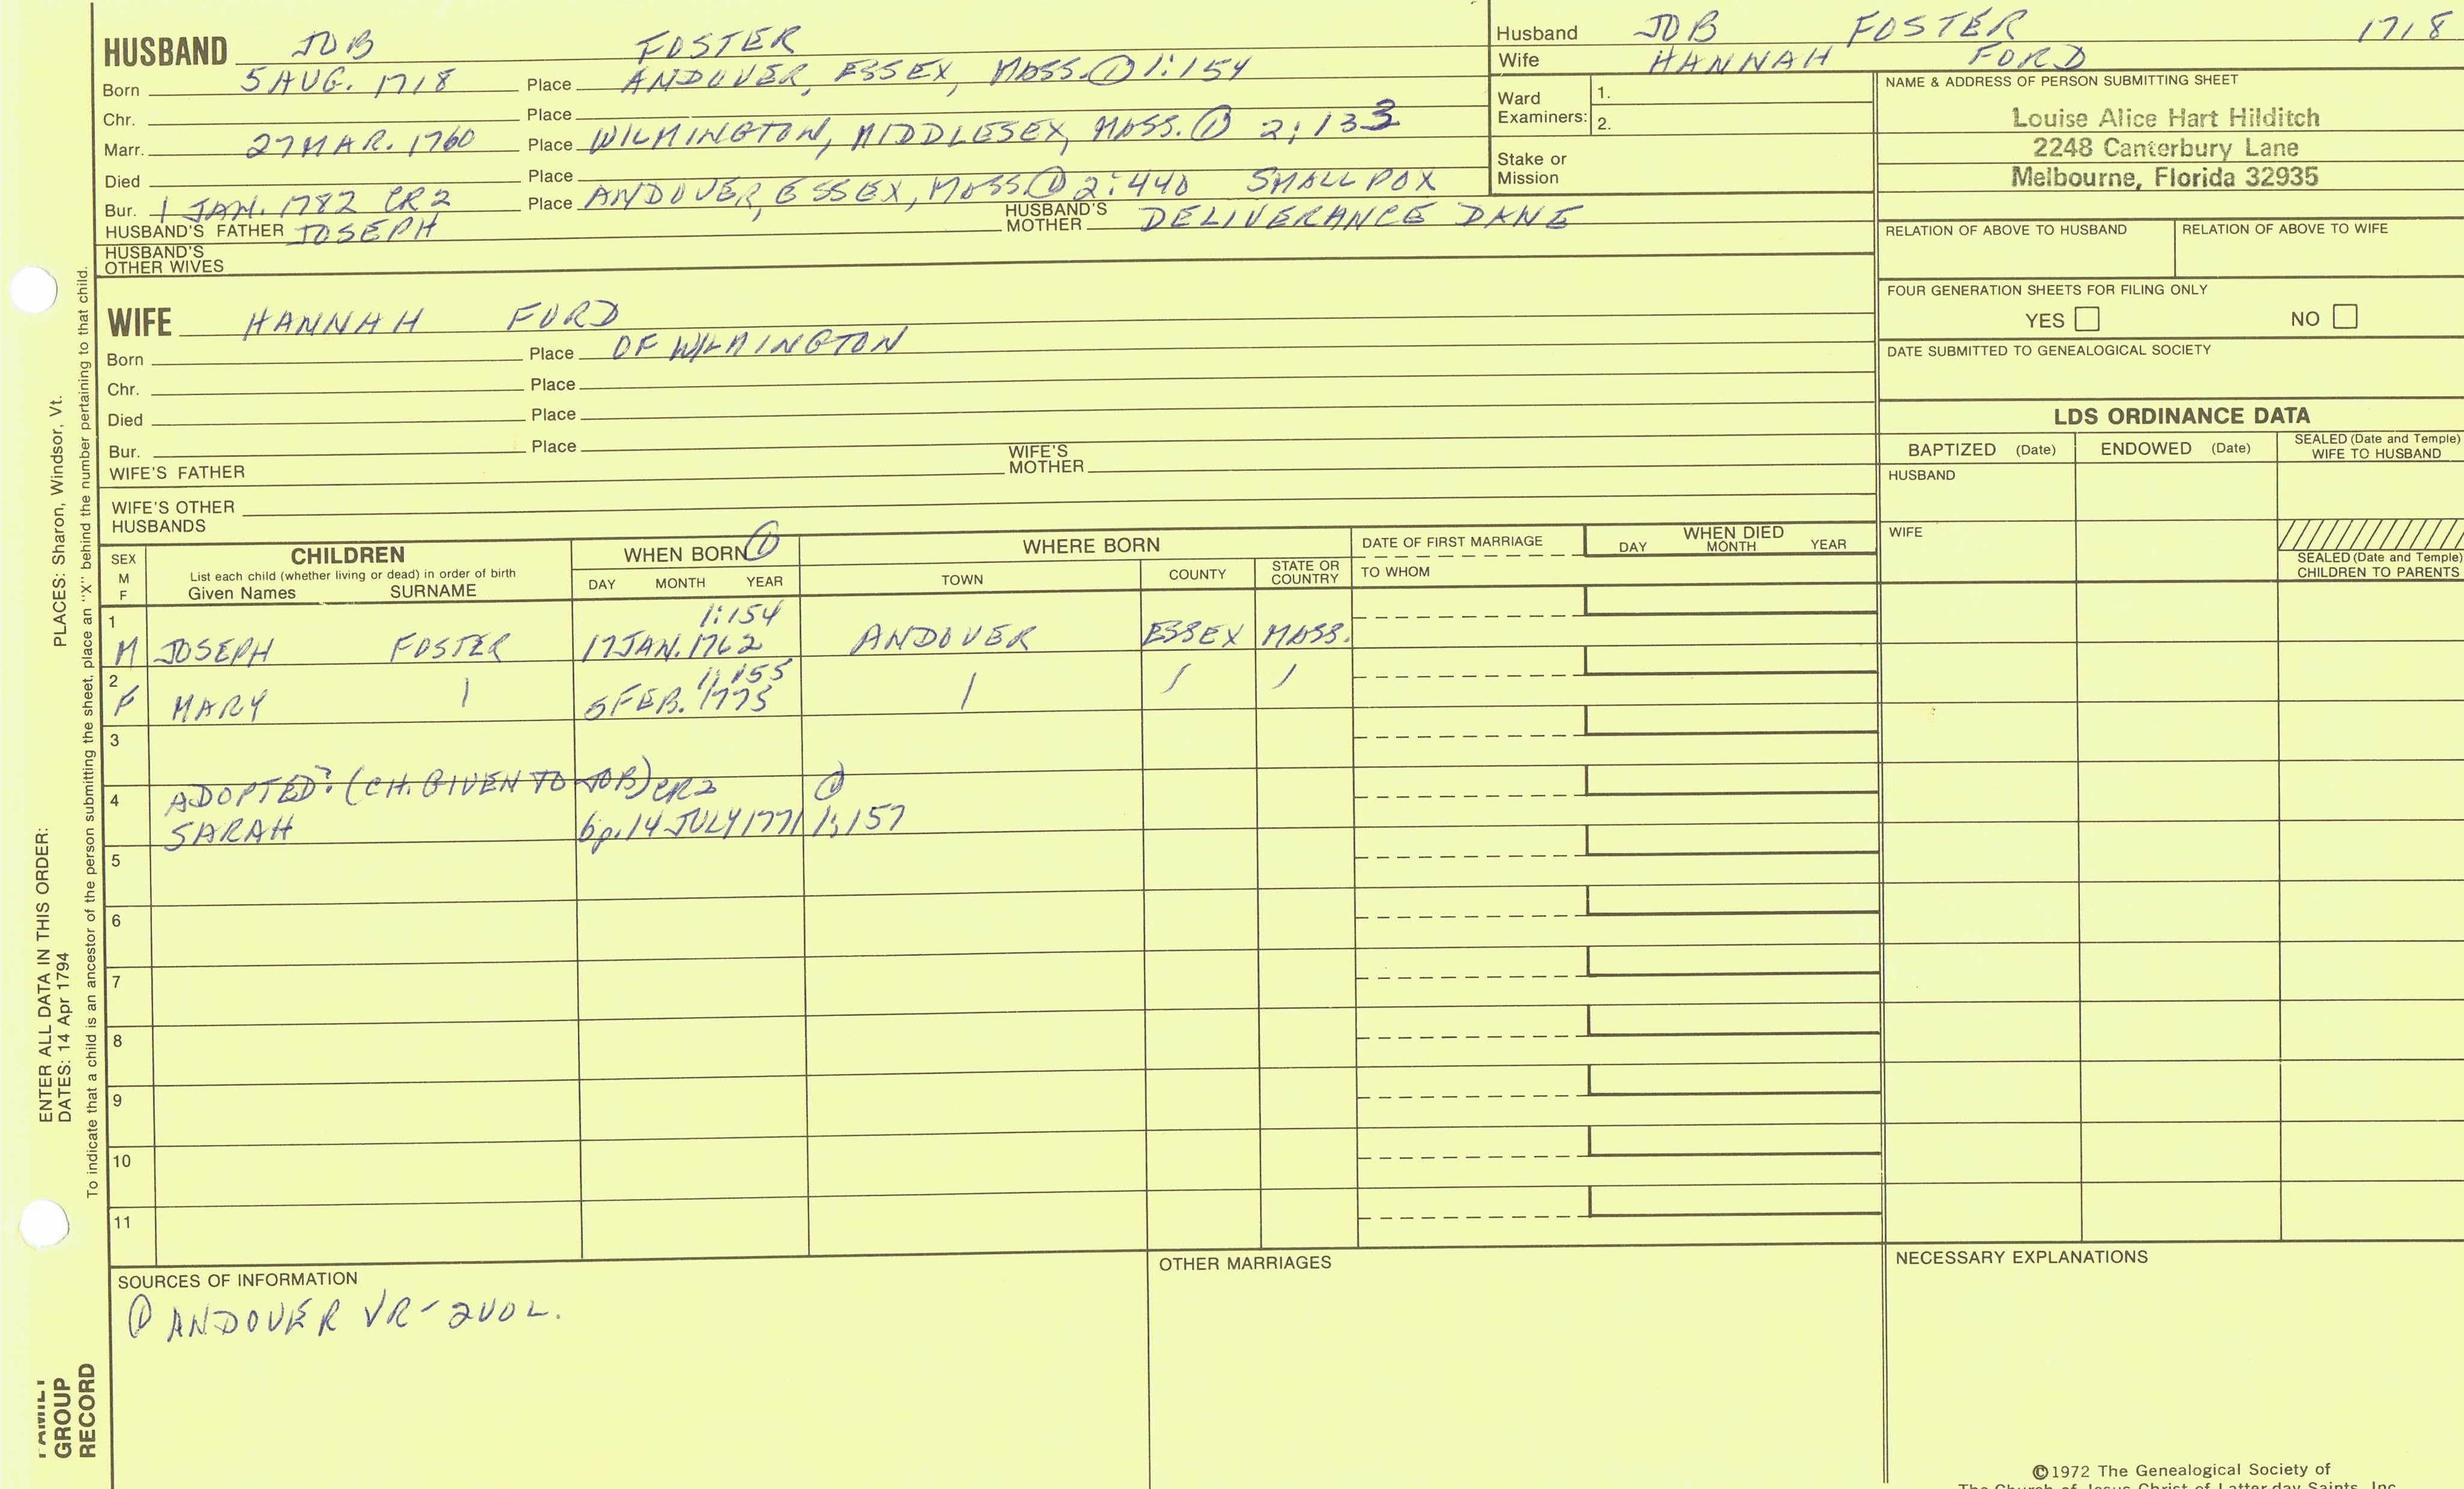 HUSBAND JOB FOSTER
Born 5 AUG. 1718 Place ANDOVER, ESSEX, MASS. ① 1:154
Chr. Place
Marr. 27 MAR. 1760 Place WILMINGTON, MIDDLESEX, MASS. ① 2:133
Died Place
Bur. 1 JAN. 1782 CR2 Place ANDOVER, ESSEX, MASS ① 2:440 SMALL POX
HUSBAND'S FATHER JOSEPH HUSBAND'S MOTHER DELIVERANCE DANE
HUSBAND'S OTHER WIVES
Husband JOB FOSTER 1718
Wife HANNAH FORD
Ward Examiners: 1.
2.
Stake or Mission
NAME & ADDRESS OF PERSON SUBMITTING SHEET
Louise Alice Hart Hilditch
2248 Canterbury Lane
Melbourne, Florida 32935
RELATION OF ABOVE TO HUSBAND RELATION OF ABOVE TO WIFE
FOUR GENERATION SHEETS FOR FILING ONLY
YES NO
DATE SUBMITTED TO GENEALOGICAL SOCIETY
WIFE HANNAH FORD
Born Place OF WILMINGTON
Chr. Place
Died Place
Bur. Place
WIFE'S FATHER WIFE'S MOTHER
WIFE'S OTHER HUSBANDS
LDS ORDINANCE DATA
BAPTIZED (Date) ENDOWED (Date) SEALED (Date and Temple) WIFE TO HUSBAND
HUSBAND
WIFE
SEALED (Date and Temple) CHILDREN TO PARENTS
SEX M F
CHILDREN
List each child (whether living or dead) in order of birth
Given Names SURNAME
WHEN BORN ①
DAY MONTH YEAR
WHERE BORN
TOWN COUNTY STATE OR COUNTRY
DATE OF FIRST MARRIAGE
TO WHOM
WHEN DIED
DAY MONTH YEAR
1 1:154
M JOSEPH FOSTER 17 JAN. 1762 ANDOVER ESSEX MASS.
2 1:155
F MARY / 5 FEB. 1773 / / /
3
4 ADOPTED? (CH. GIVEN TO JOB) CR2 ①
SARAH bp. 14 JULY 1771 1:157
5
6
7
8
9
10
11
SOURCES OF INFORMATION
① ANDOVER VR - 2 VOL.
OTHER MARRIAGES
NECESSARY EXPLANATIONS
©1972 The Genealogical Society of
The Church of Jesus Christ of Latter-day Saints, Inc.
ENTER ALL DATA IN THIS ORDER:
DATES: 14 Apr 1794
PLACES: Sharon, Windsor, Vt.
To indicate that a child is an ancestor of the person submitting the sheet, place an "X" behind the number pertaining to that child.
FAMILY
GROUP
RECORD